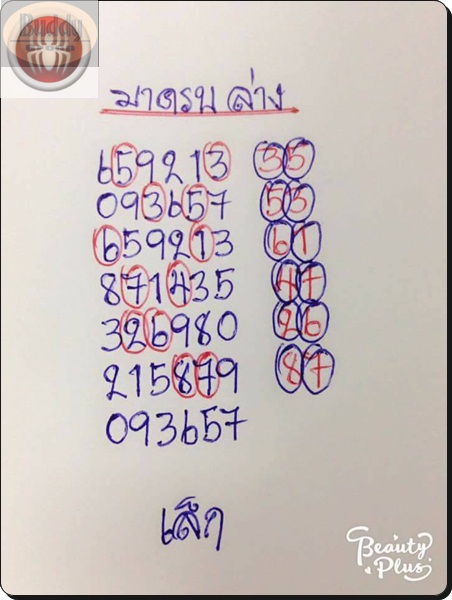 Buddy
มาครบ ล่าง
659213 35
093657 53
659213 61
871435 47
326980 26
215879 87
093657
Beauty
Plus